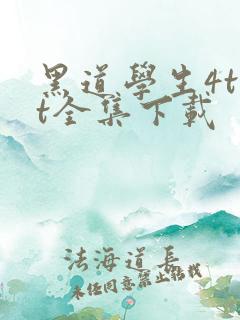 黑道學生4t
t全集下載
法海道長
未经同意禁止转载